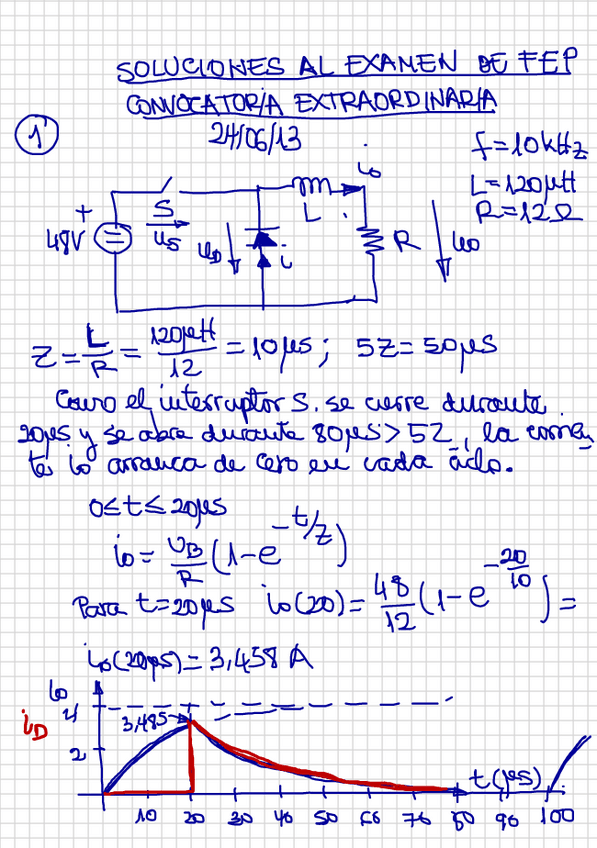 SOLUCIONES AL EXAMEN DE FEP
CONVOCATORIA EXTRAORDINARIA
24/06/13
1
f=10kHz
L=120μH
R=12Ω
48V
+
S
u_S
u_D
i
L
i_o
R
u_o
Z = L/R = 120μH/12 = 10μs ; 5Z = 50μs
Como el interruptor S. se cierre durante
20μs y se abre durante 80μs > 5Z, la corrien
te i_o arranca de cero en cada ciclo.
0≤t≤20μs
i_o = U_B/R (1-e^{-t/Z})
Para t=20μs i_o(20) = 48/12 (1-e^{-20/10}) =
i_o(20μs) = 3,458 A
i_o
i_D
4
3,485
2
t(μs)
10 20 30 40 50 60 70 80 90 100